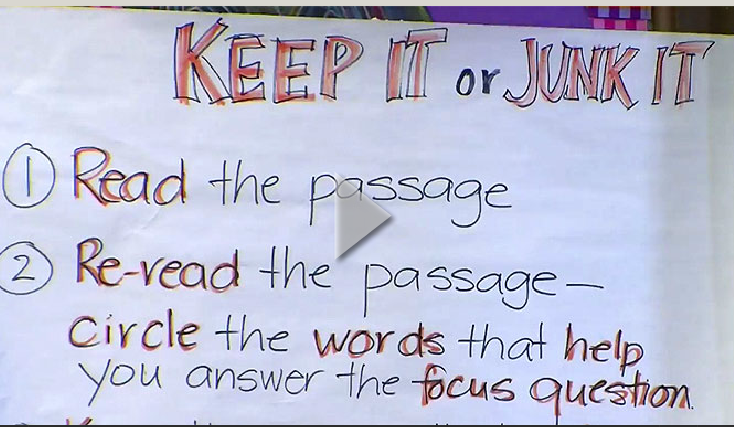 KEEP IT or JUNK IT
1 Read the passage
2 Re-read the passage—
circle the words that help
you answer the focus question.